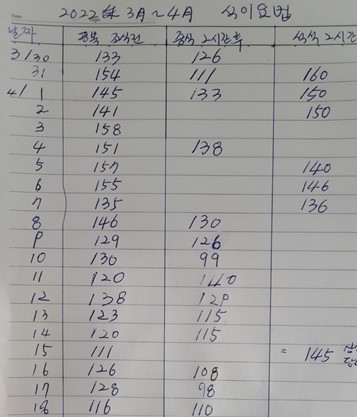 2022년 3月~4月 식이요법
날짜 공복 조식전 중식 2시간후 석식 2시간
3/30 133 126
31 154 111 160
4/1 145 133 150
2 141 150
3 158
4 151 138
5 157 140
6 155 146
7 135 136
8 146 130
9 129 126
10 130 99
11 120 140
12 138 129
13 123 115
14 120 115
15 111 = 145
16 126 108
17 128 98
18 116 110